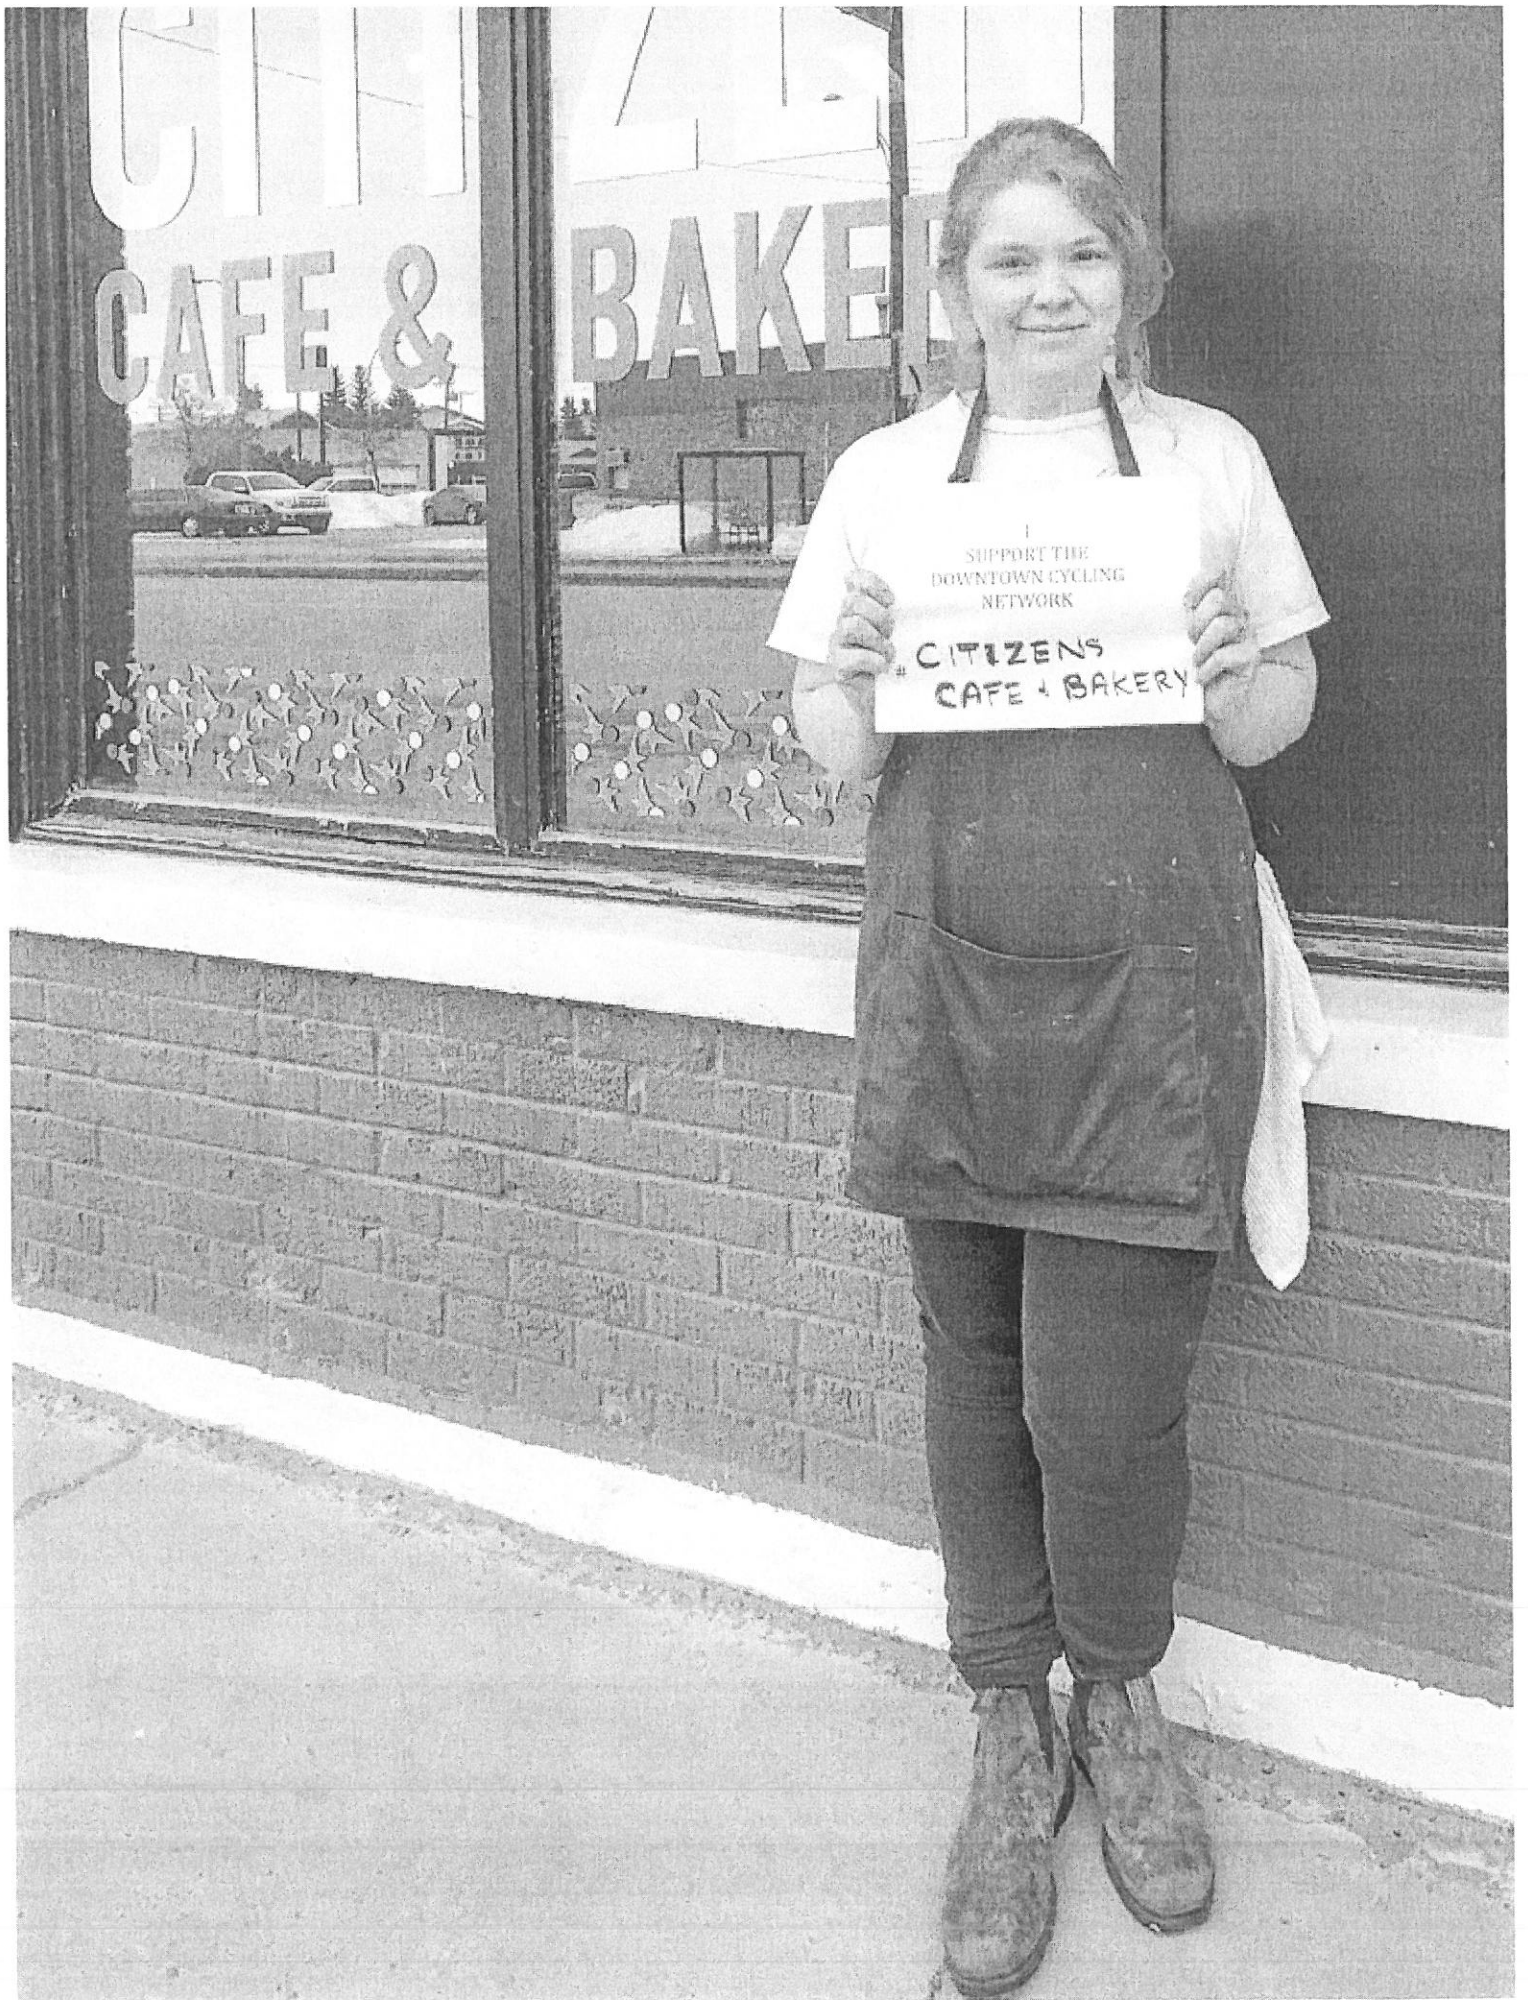 CITIZEN
CAFE & BAKER
I
SUPPORT THE
DOWNTOWN CYCLING
NETWORK
# CITIZENS
CAFE & BAKERY